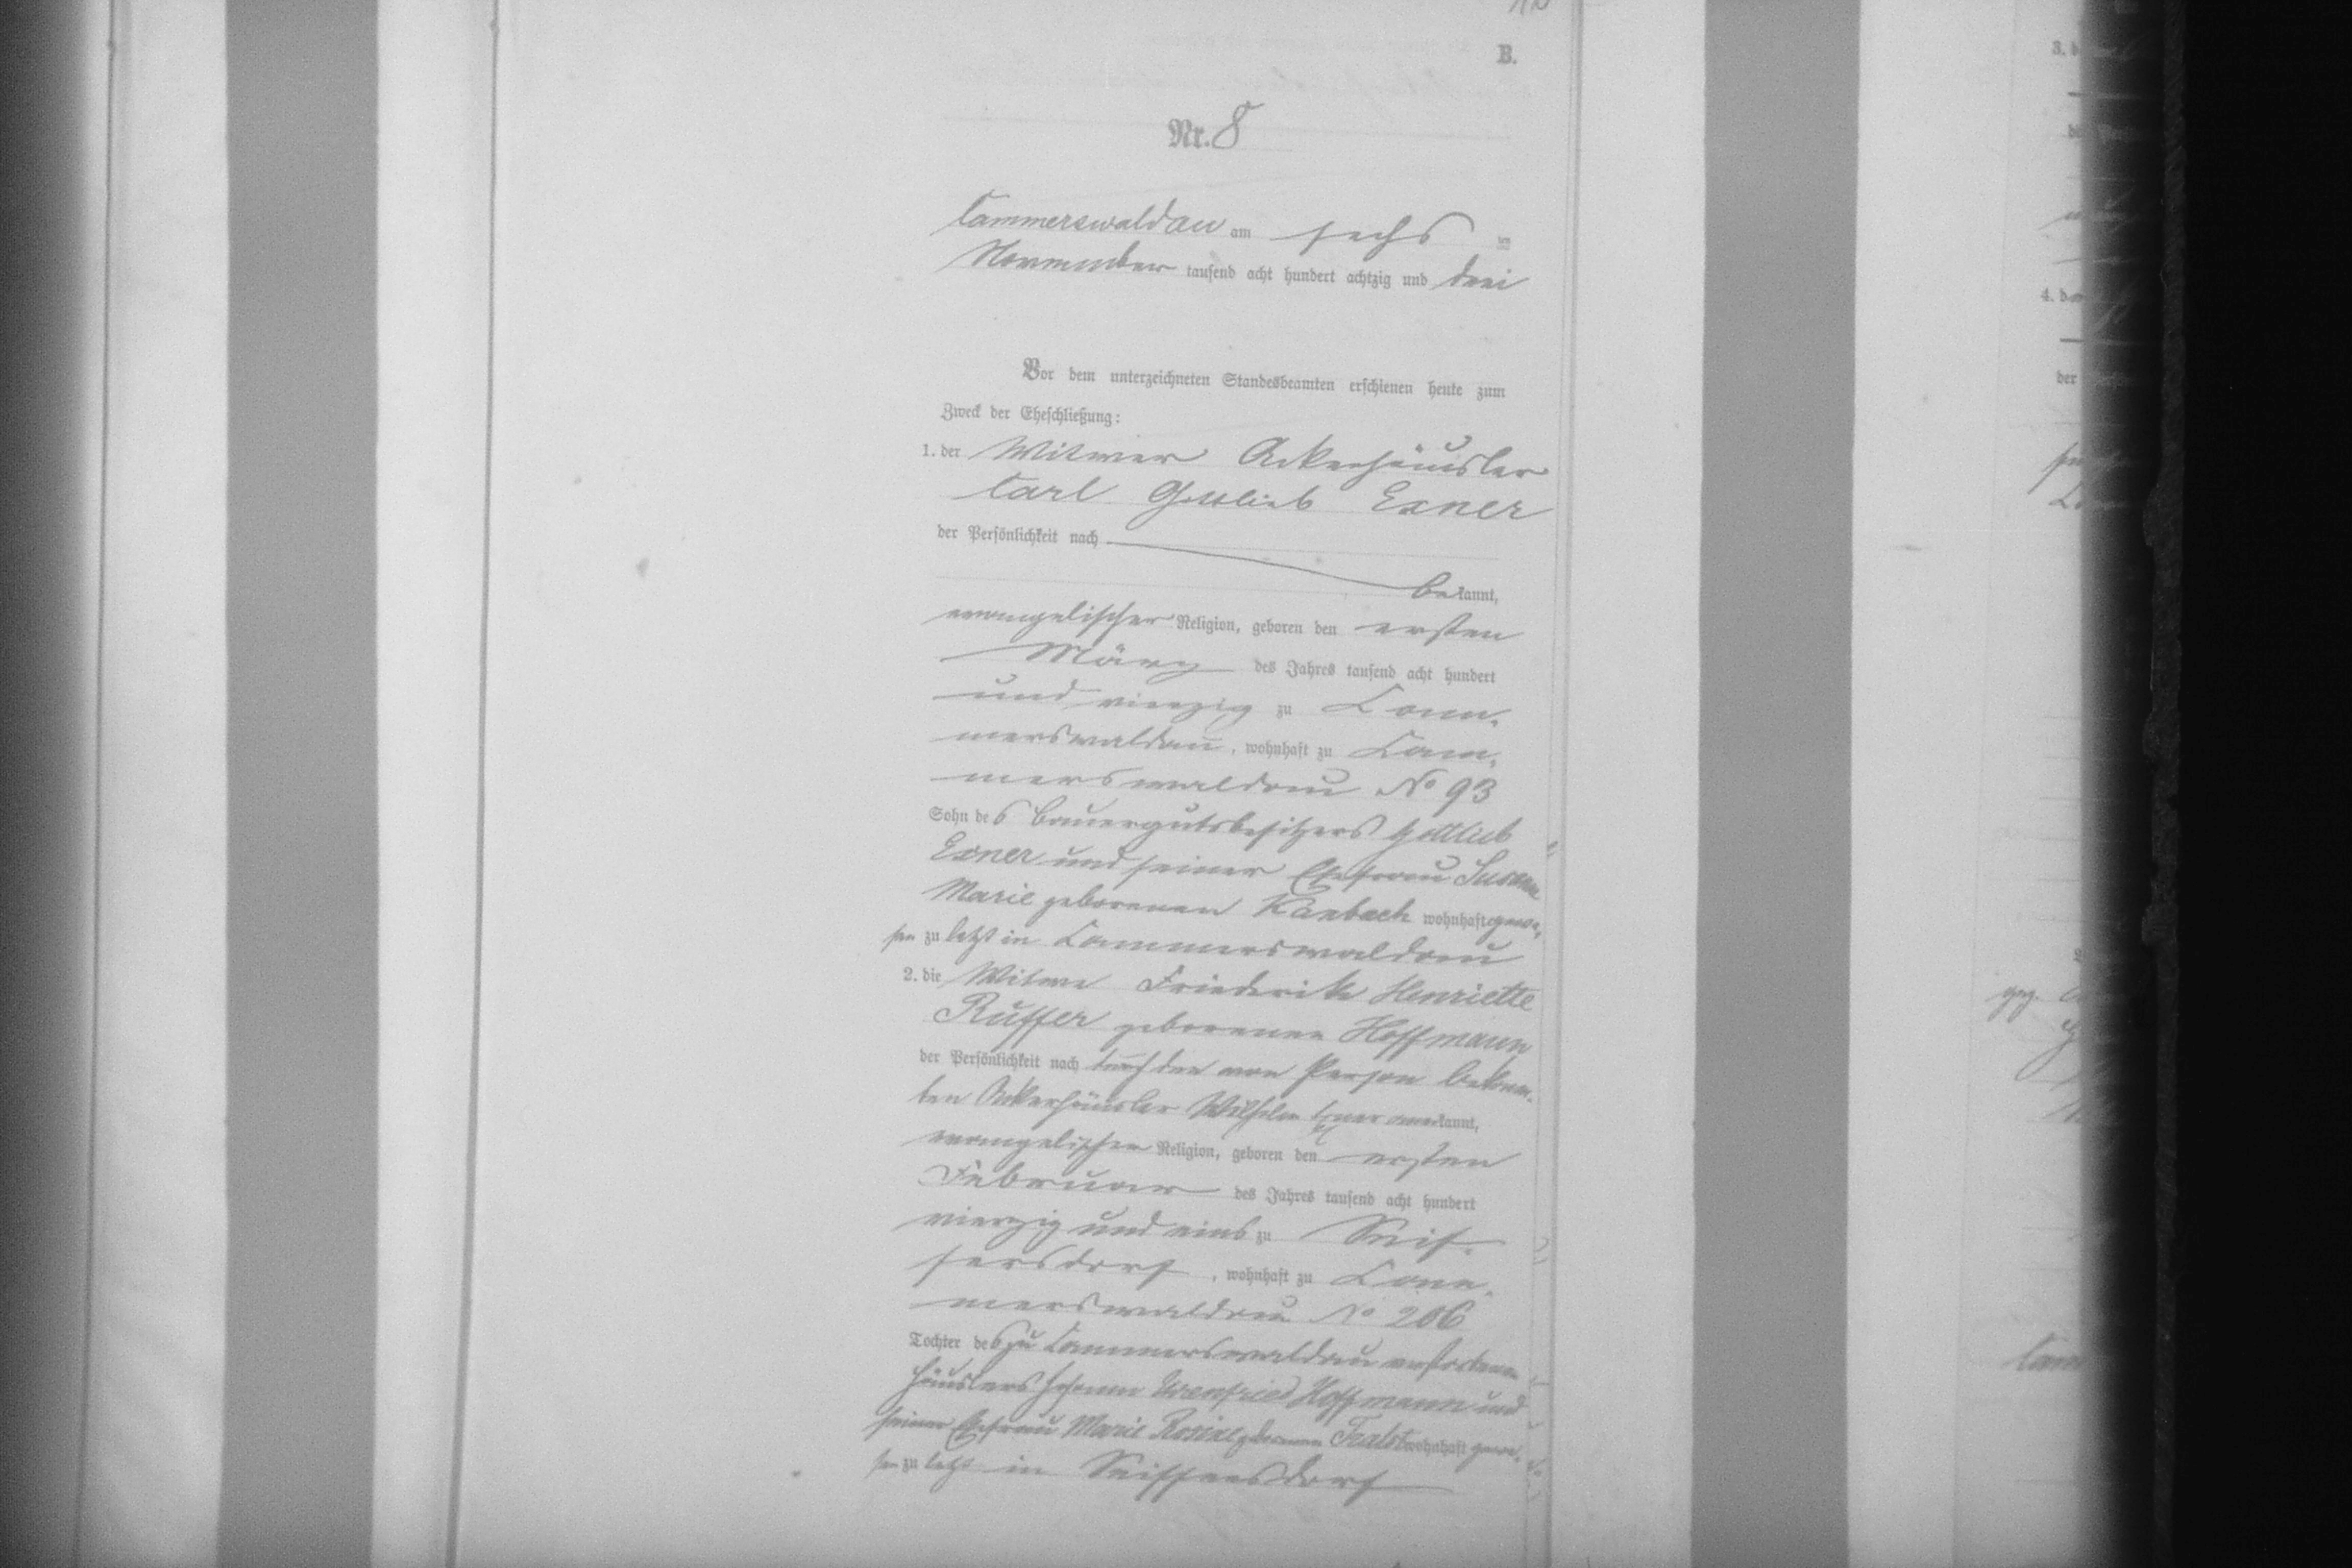 B.
Nr. 8
Cammerswaldau am sechs ten
November tausend acht hundert achtzig und drei
Vor dem unterzeichneten Standesbeamten erschienen heute zum
Zweck der Eheschließung:
1. der Witwer Ackerhäusler
Carl Gottlieb Exner
der Persönlichkeit nach
bekannt,
evangelischer Religion, geboren den ersten
März des Jahres tausend acht hundert
und vierzig zu Cam-
merswaldau, wohnhaft zu Cam-
merswaldau No 93
Sohn des Bauergutsbesitzers Gottlieb
Exner und seiner Ehefrau Susanne
Marie geborenen Kambach wohnhaft gewe-
sen zu letzt in Cammerswaldau
2. die Witwe Friederike Henriette
Ruffer geborenen Hoffmann
der Persönlichkeit nach durch den von Person bekann-
ten Ackerhäusler Wilhelm Exner anerkannt,
evangelischen Religion, geboren den ersten
Februar des Jahres tausend acht hundert
vierzig und eins zu Seif-
fersdorf, wohnhaft zu Cam-
merswaldau No 206
Tochter des zu Cammerswaldau verstorbenen
Häuslers Johann Ehrenfried Hoffmann und
seiner Ehefrau Marie Rosine geborenen wohnhaft gewe-
sen zu letzt in Seiffersdorf
3. b
4. de
der